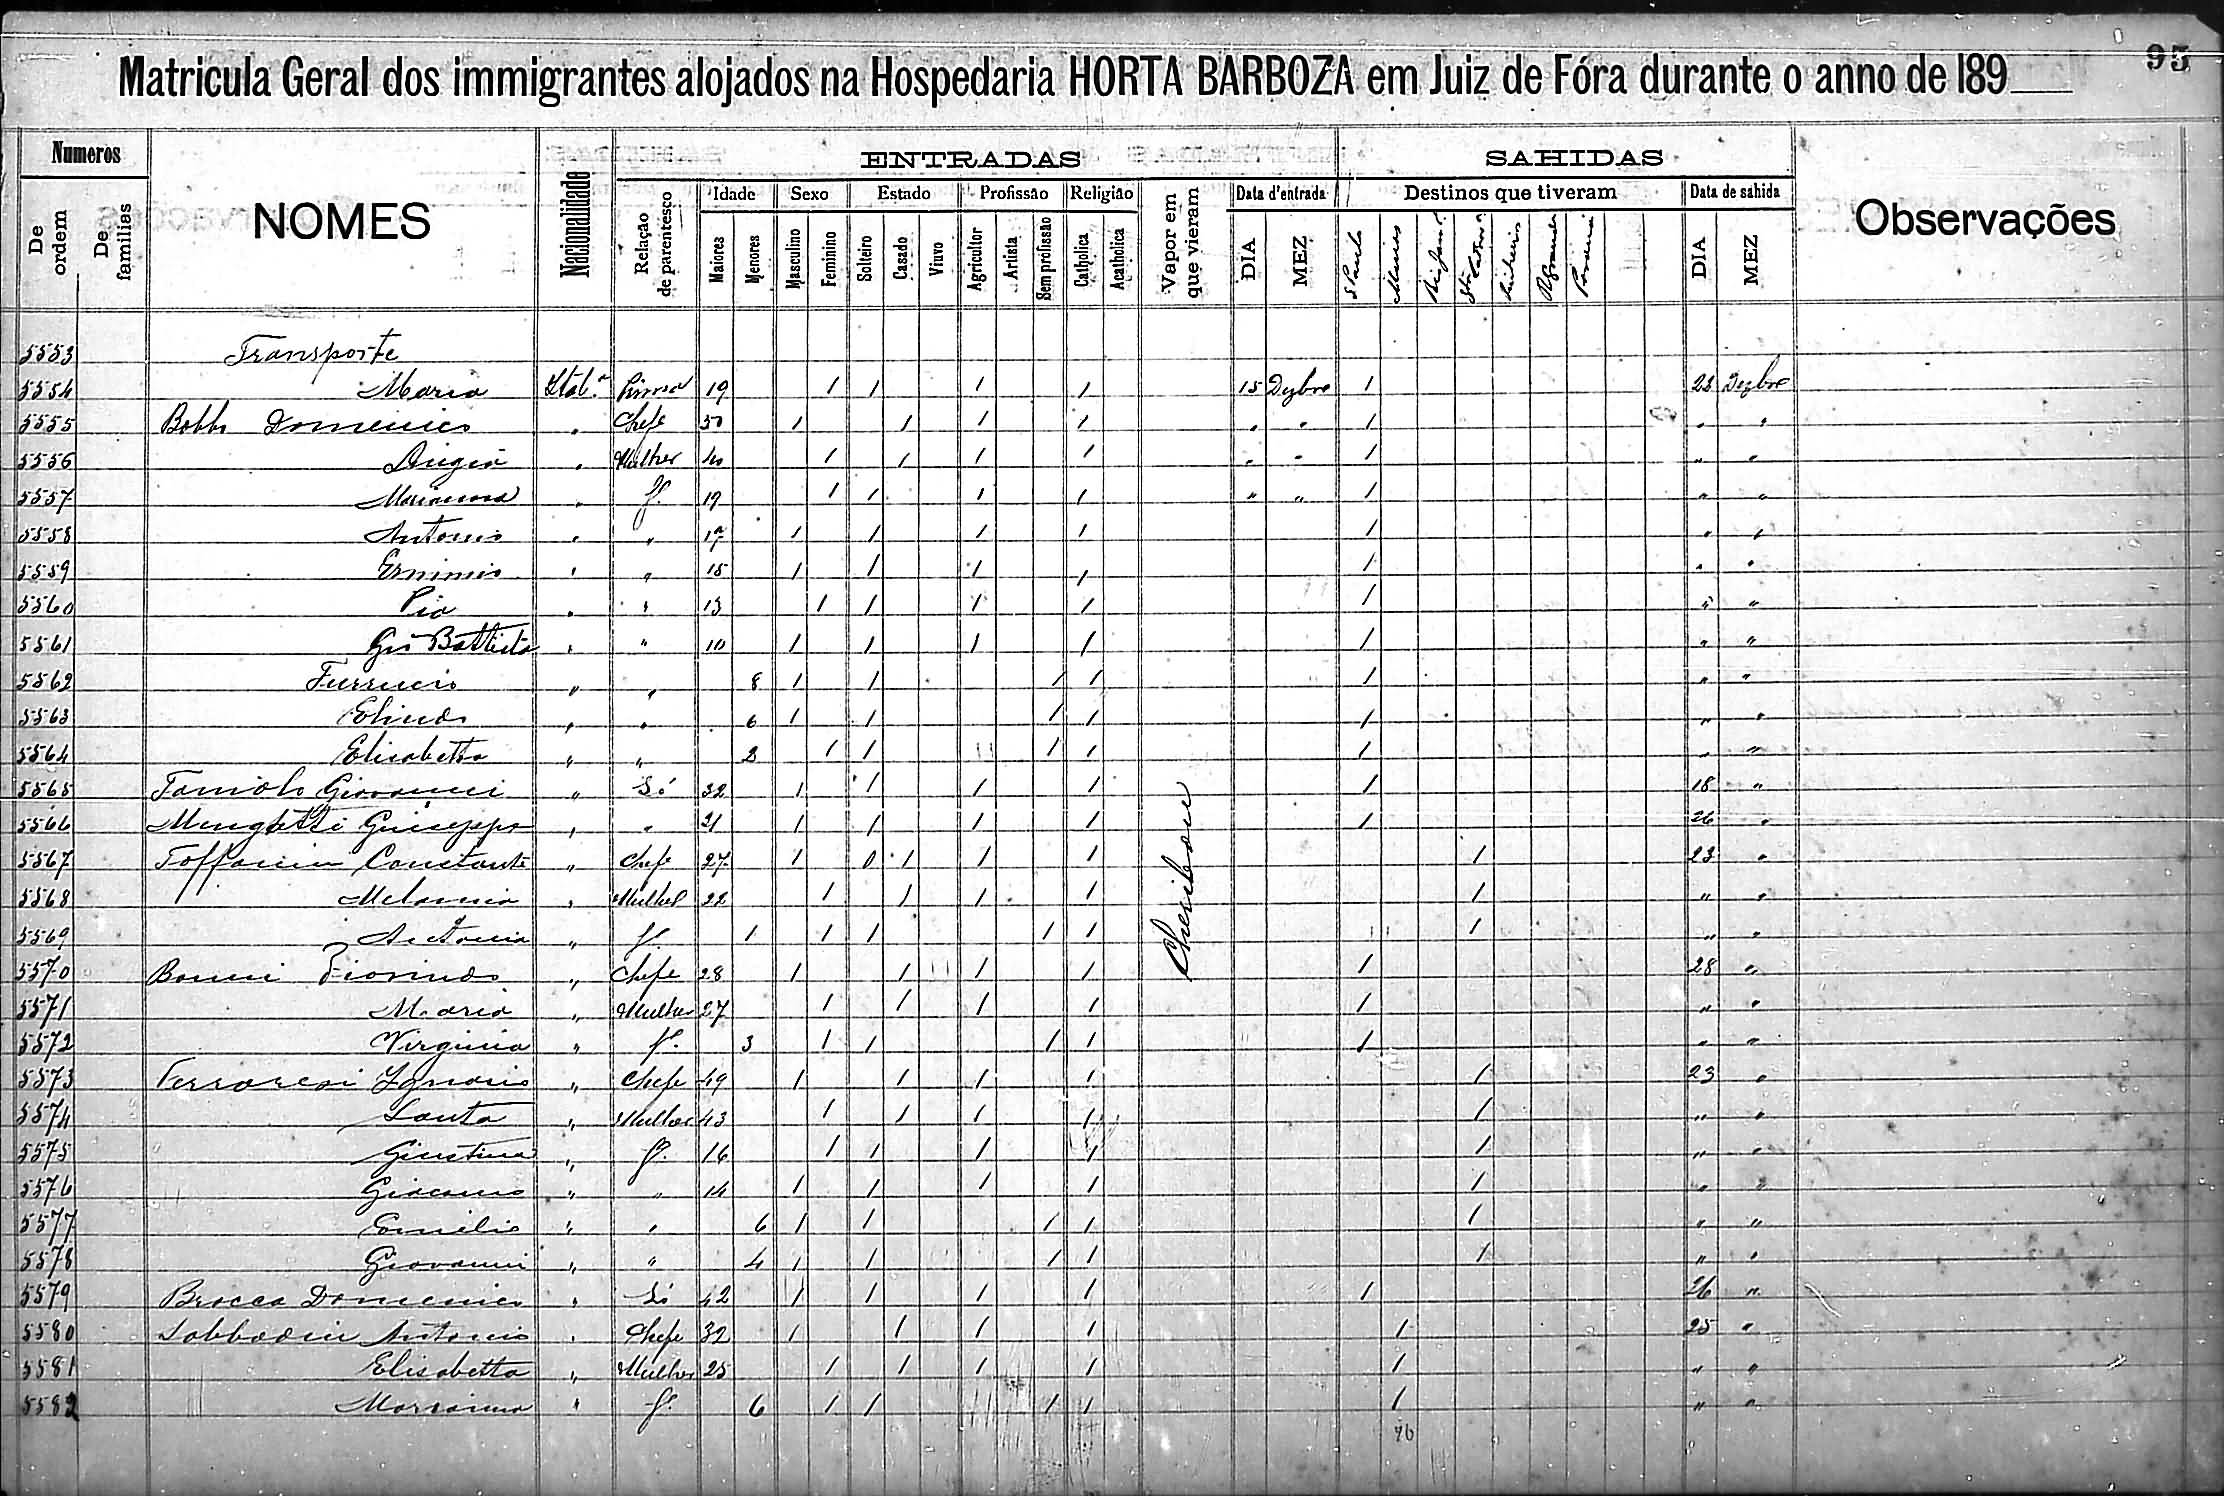 95
Matricula Geral dos immigrantes alojados na Hospedaria HORTA BARBOZA em Juiz de Fóra durante o anno de 189
Numeros
De ordem
De familias
NOMES
Nacionalidade
ENTRADAS
Relação de parentesco
Idade
Maiores
Menores
Sexo
Masculino
Feminino
Estado
Solteiro
Casado
Viuvo
Profissão
Agricultor
Artista
Sem profissão
Religião
Catholica
Acatholica
Vapor em que vieram
Data d'entrada
DIA
MEZ
SAHIDAS
Destinos que tiveram
S Paulo
Minas
Data de sahida
DIA
MEZ
Observações
5553 Transporte
5554 Maria Ital.ª 19 1 1 1 1 15 Dezbro 1 22 Dezbro
5555 Domenico " Chefe 50 1 1 1 1 " " 1 " "
5556 " Mulher 40 1 1 1 1 " " 1 " "
5557 " f. 19 1 1 1 1 " " 1 " "
5558 Antonio " " 17 1 1 1 1 1 " "
5559 " " 15 1 1 1 1 1 " "
5560 Pia " " 13 1 1 1 1 1 " "
5561 Battista " " 10 1 1 1 1 1 " "
5562 " " 8 1 1 1 1 1 " "
5563 " " 6 1 1 1 1 1 " "
5564 Elisabetta " " 2 1 1 1 1 1 " "
5565 Giovanni " Só 32 1 1 1 1 1 18 "
5566 Menghetti Guiseppe " " 21 1 1 1 1 1 26 "
5567 Toffanin Constante " Chefe 27 1 0 1 1 1 1 23 "
5568 Melania " Mulher 22 1 1 1 1 1 " "
5569 Antonia " f. 1 1 1 1 1 1 " "
5570 Fiorindo " Chefe 28 1 1 1 1 1 28 "
5571 Maria " Mulher 27 1 1 1 1 1 " "
5572 Virginia " f. 3 1 1 1 1 1 " "
5573 " Chefe 49 1 1 1 1 1 23 "
5574 Santa " Mulher 43 1 1 1 1 1 " "
5575 Giustina " f. 16 1 1 1 1 1 " "
5576 Giacomo " " 14 1 1 1 1 1 " "
5577 Emilio " " 6 1 1 1 1 1 " "
5578 Giovanni " " 4 1 1 1 1 1 " "
5579 Brocca Domenico " Só 42 1 1 1 1 1 26 "
5580 Sabbadin Antonio " Chefe 32 1 1 1 1 1 25 "
5581 Elisabetta " Mulher 25 1 1 1 1 1 " "
5582 Marianna " f. 6 1 1 1 1 1 " "